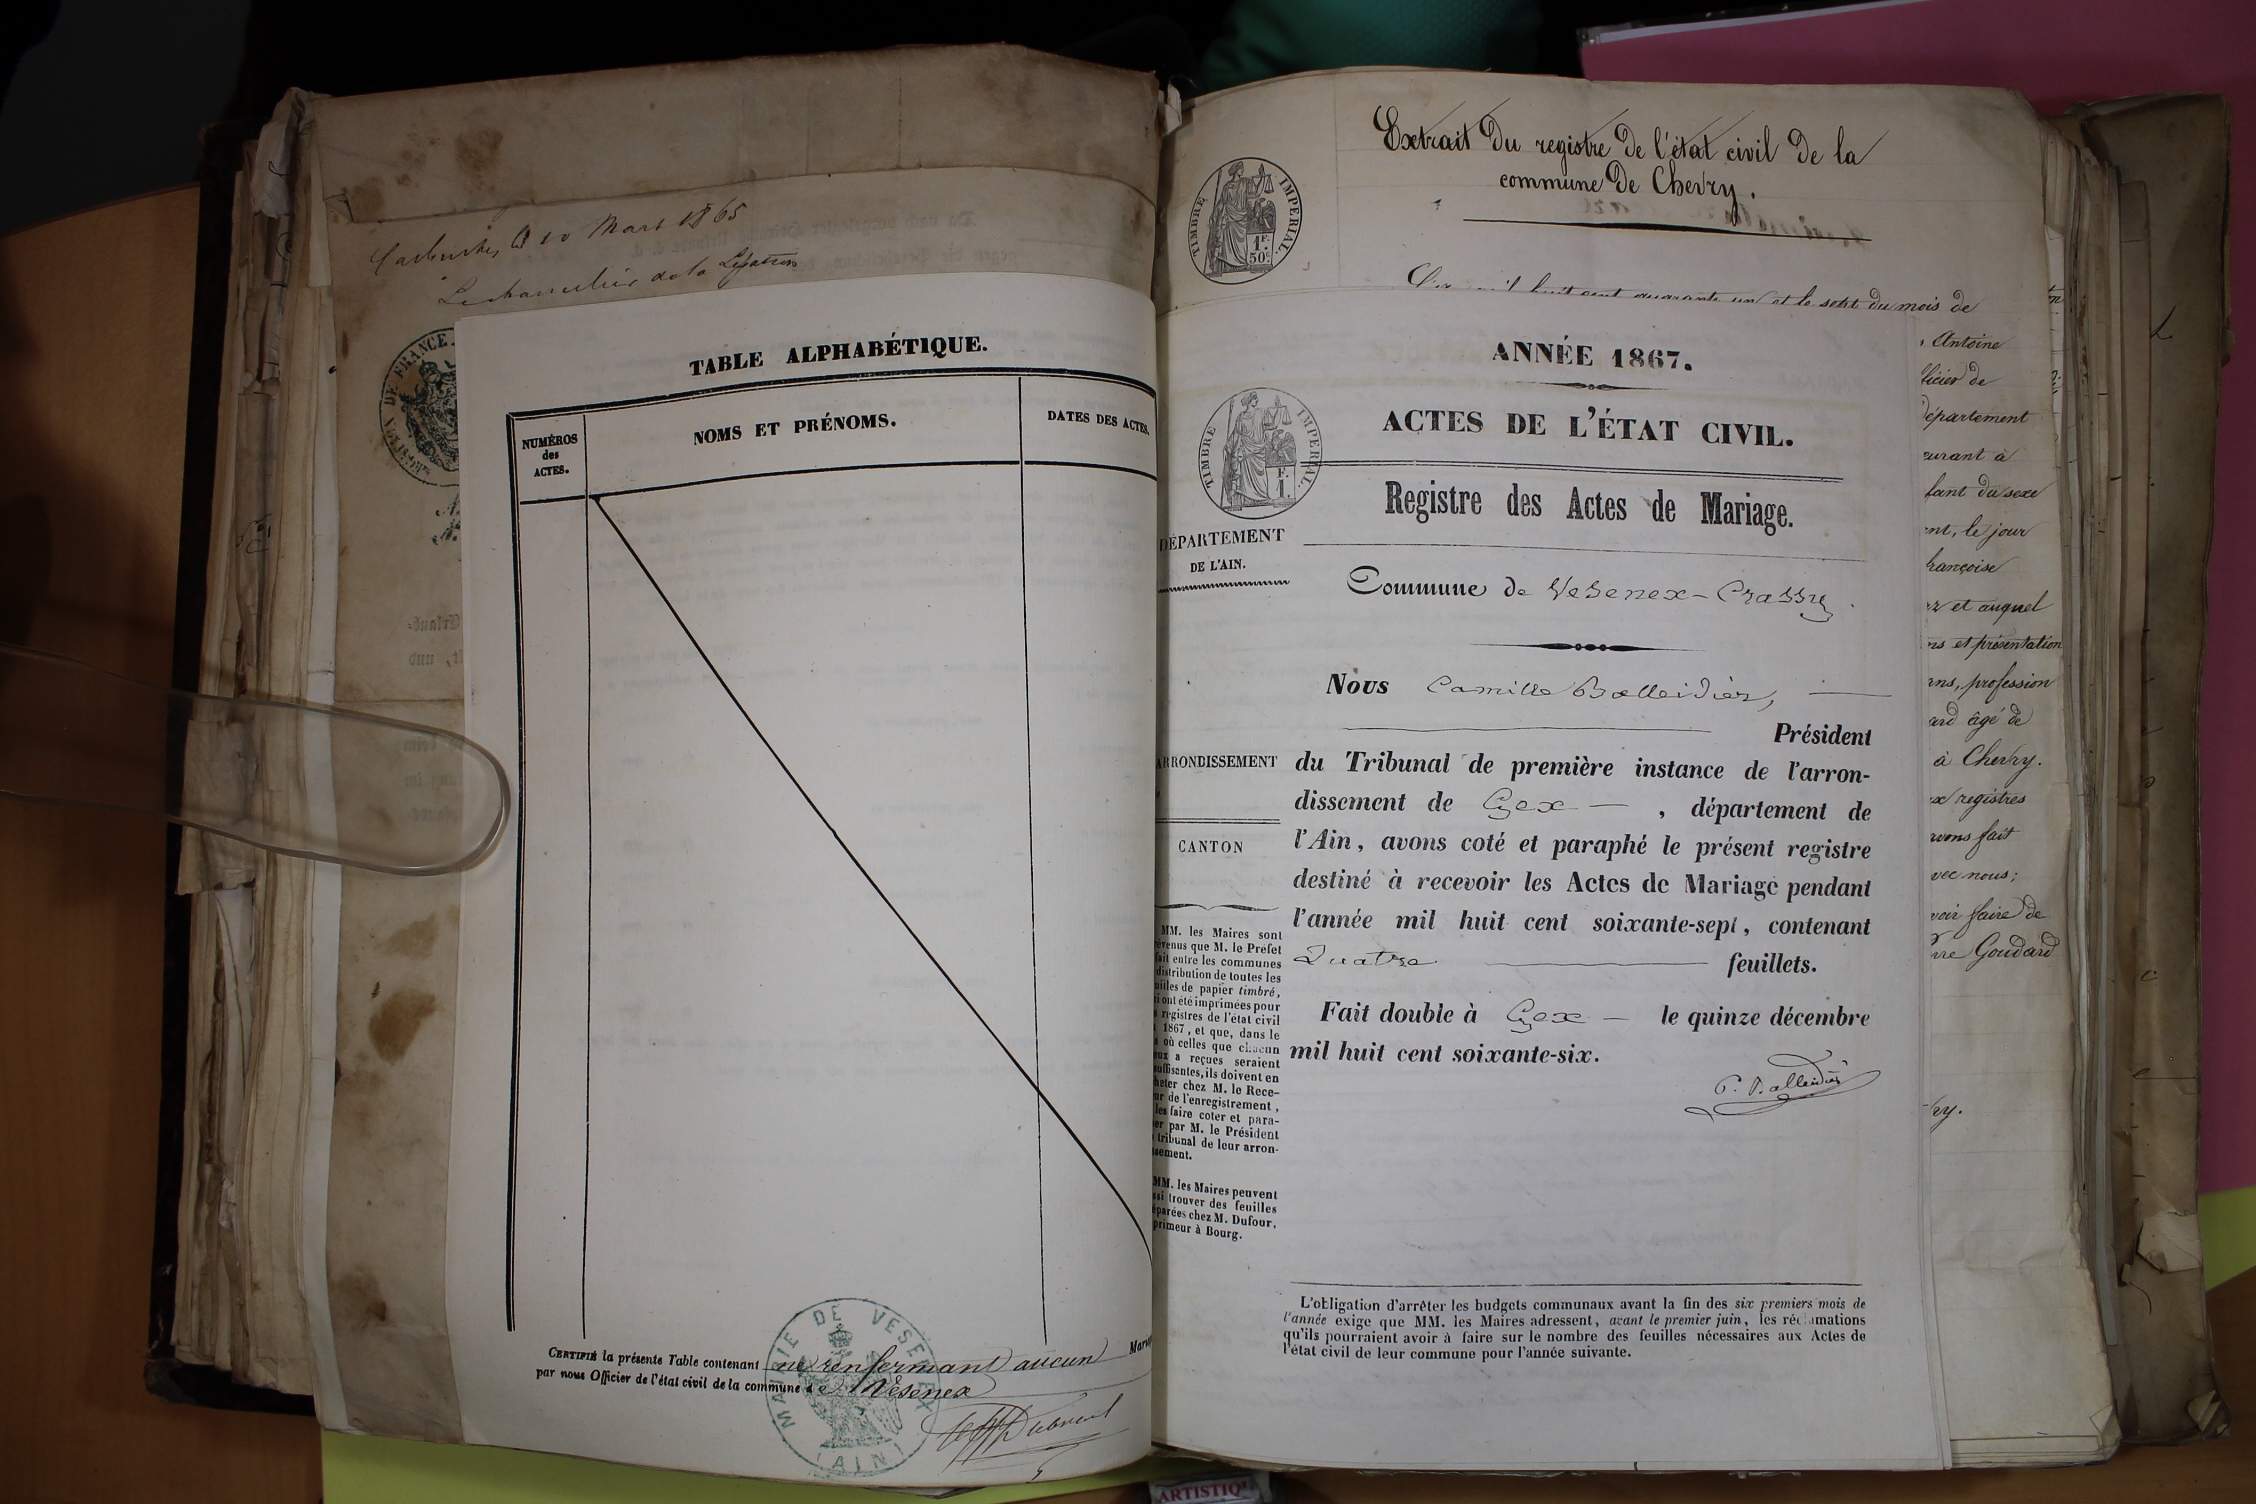 10 Mars 1865
Le chancelier de la Légation
DE FRANCE
TABLE ALPHABÉTIQUE.
NUMÉROS
des
ACTES.
NOMS ET PRÉNOMS.
DATES DES ACTES.
CERTIFIÉ la présente Table contenant ne renfermant aucun
par nous Officier de l'état civil de la commune de Vesenex
MAIRIE DE VESENEX
(AIN)
Extrait du registre de l'état civil de la
commune de Chevry.
TIMBRE IMPERIAL
1F.
50c
huit cent quarante un et le sept du mois de
Antoine
ficier de
département
eurant à
fant du sexe
ent, le jour
françoise
ez et auquel
ns et présentation
ans, profession
ard âgé de
à Chevry.
ux registres
avons fait
vec nous;
voir faire de
rre Goudard
ry.
ANNÉE 1867.
TIMBRE IMPERIAL.
F.
1.
ACTES DE L'ÉTAT CIVIL.
Registre des Actes de Mariage.
DÉPARTEMENT
DE L'AIN.
Commune de Vesenex-Crassy
Nous Camille Balleidier,
Président
ARRONDISSEMENT
du Tribunal de première instance de l'arron-
dissement de Gex, département de
l'Ain, avons coté et paraphé le présent registre
CANTON
destiné à recevoir les Actes de Mariage pendant
l'année mil huit cent soixante-sept, contenant
Quatre feuillets.
Fait double à Gex le quinze décembre
mil huit cent soixante-six.
C. Balleidier
MM. les Maires sont
évenus que M. le Préfet
fait entre les communes
distribution de toutes les
uilles de papier timbré,
i ont été imprimées pour
s registres de l'état civil
1867, et que, dans le
s où celles que chacun
eux a reçues seraient
suffisantes, ils doivent en
heter chez M. le Rece-
ur de l'enregistrement,
les faire coter et para-
er par M. le Président
tribunal de leur arron-
ssement.
MM. les Maires peuvent
ssi trouver des feuilles
éparées chez M. Dufour,
primeur à Bourg.
L'obligation d'arrêter les budgets communaux avant la fin des six premiers mois de
l'année exige que MM. les Maires adressent, avant le premier juin, les réclamations
qu'ils pourraient avoir à faire sur le nombre des feuilles nécessaires aux Actes de
l'état civil de leur commune pour l'année suivante.
ARTISTIQ